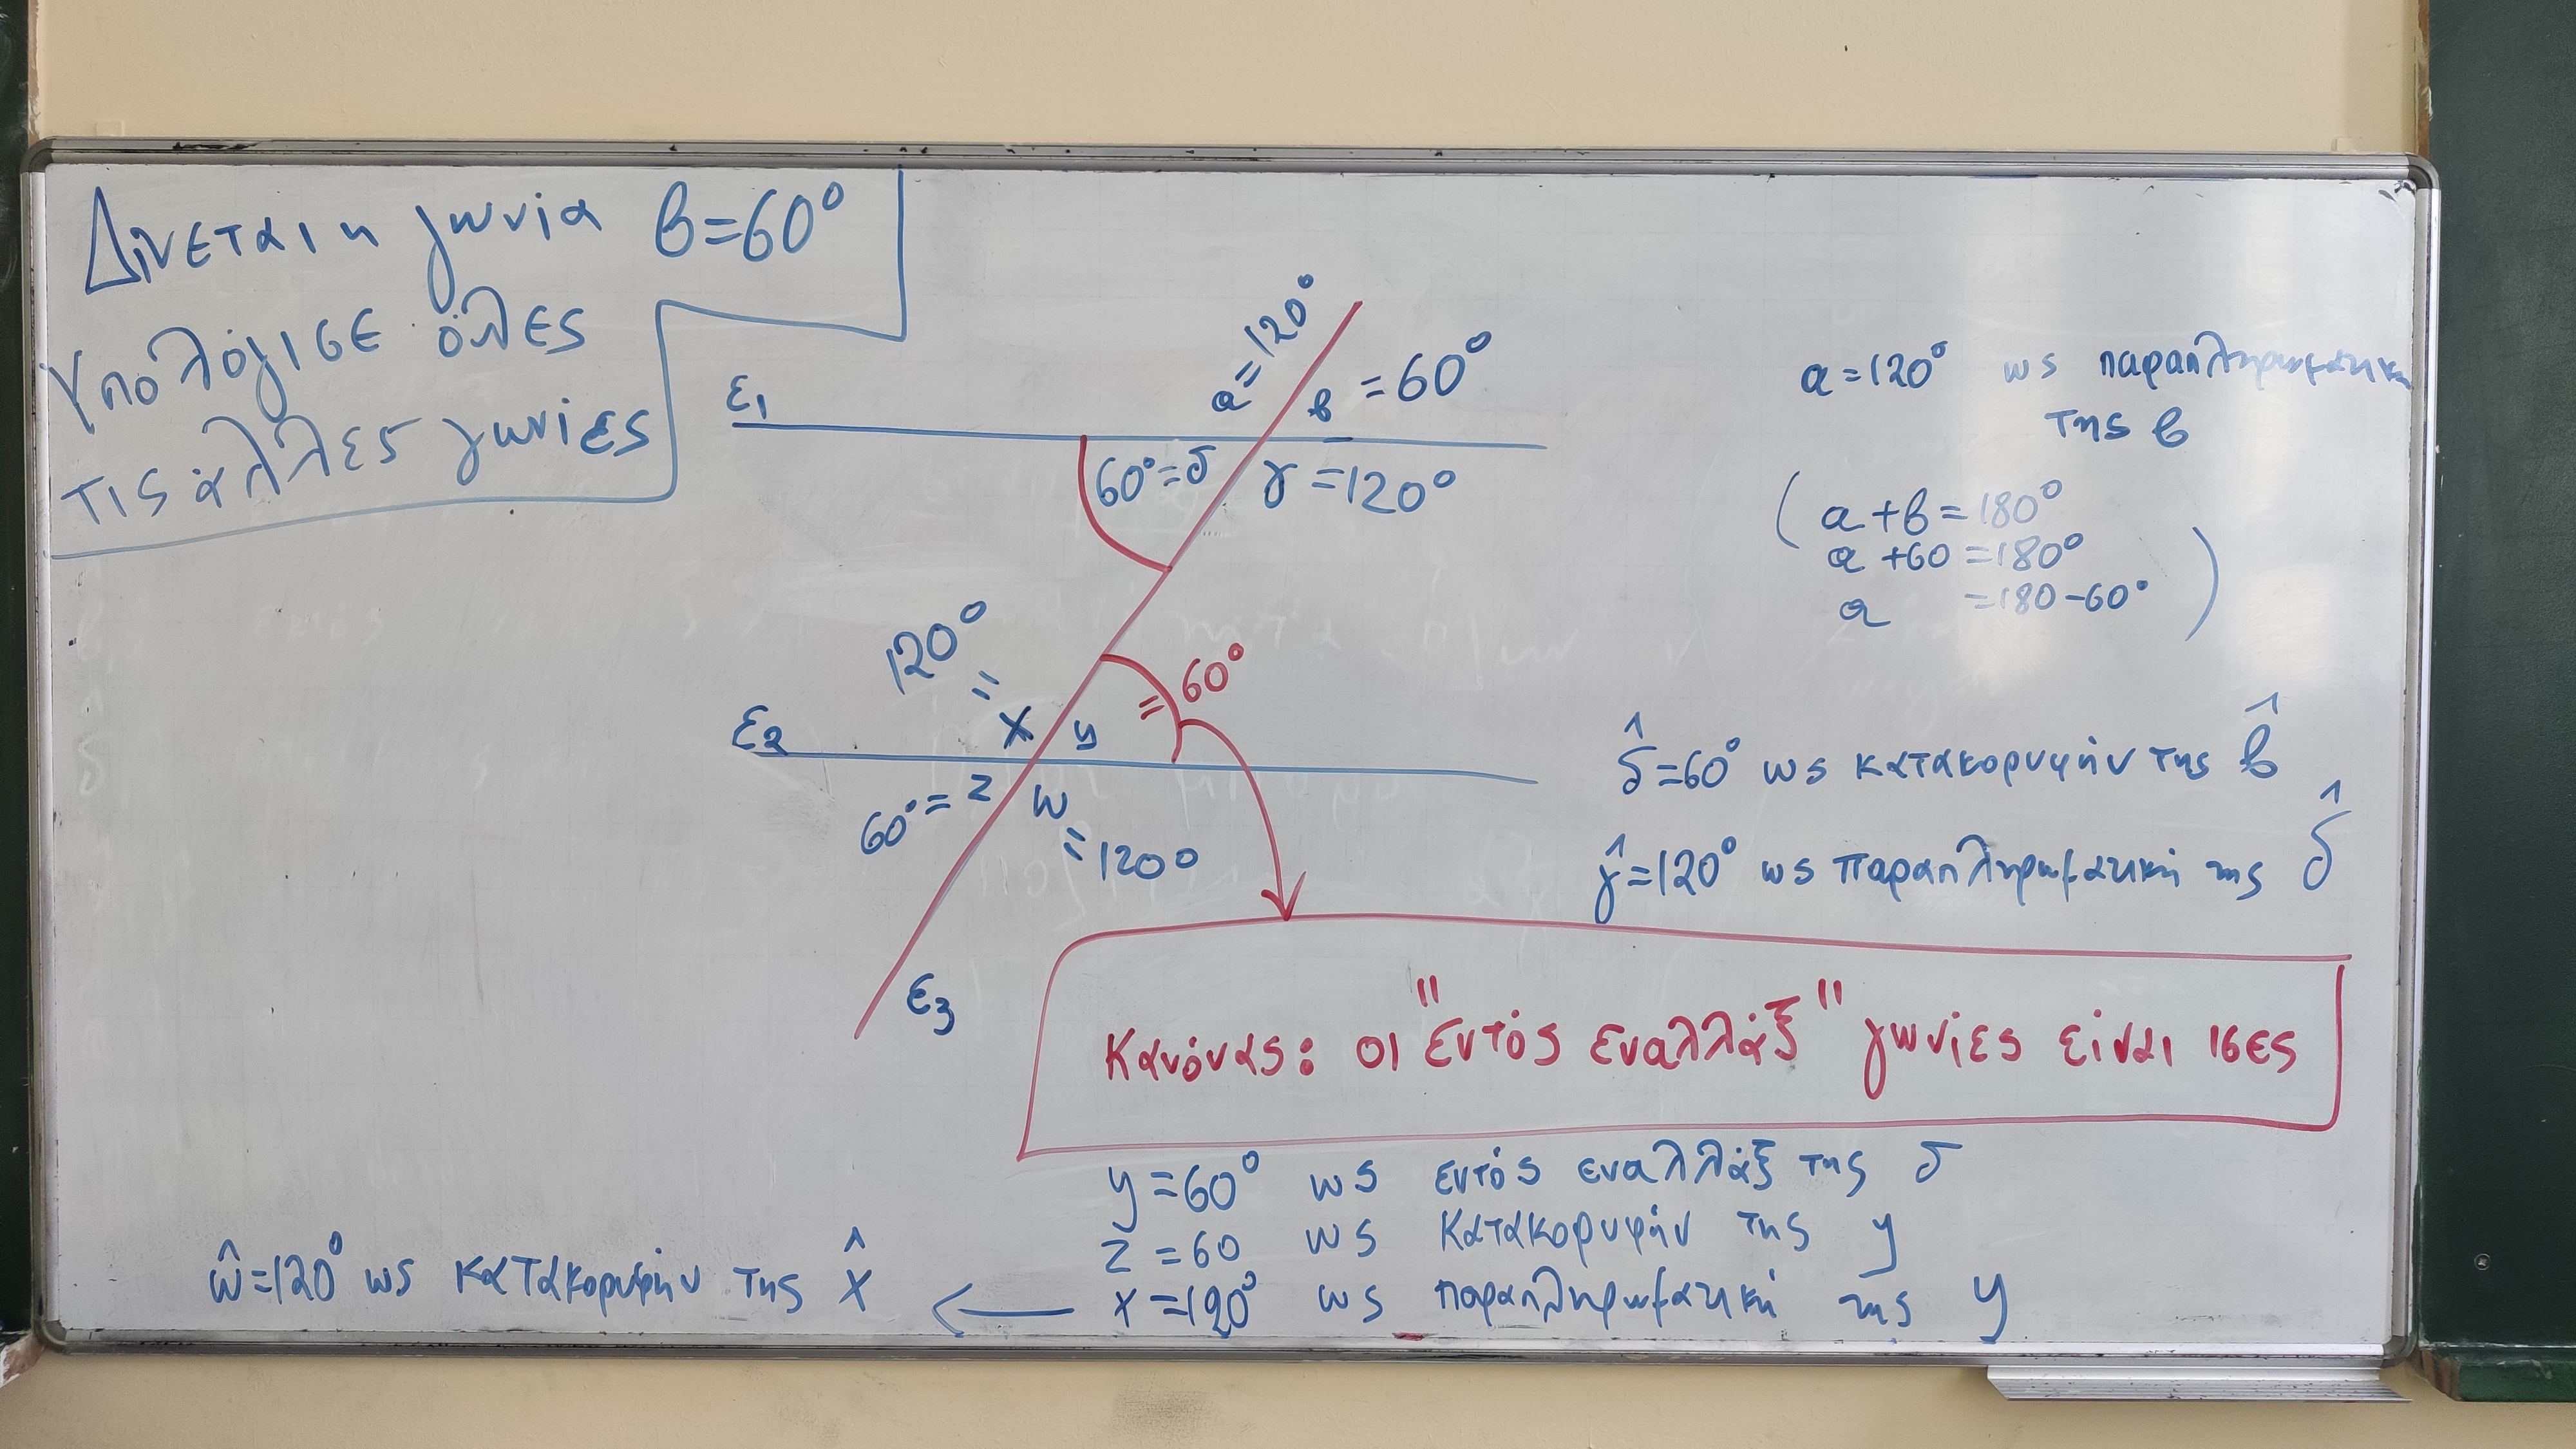 Δίνεται η γωνία β=60°
Υπολόγισε όλες
τις άλλες γωνίες
α=120°
β =60°
ε1
60°=δ
γ =120°
120°
=
x
y
= 60°
ε2
60°= z
w
=120°
ε3
α=120° ως παραπληρωματική
της β
(α+β=180°
α+60=180°
α =180-60°)
δ̂=60° ως κατακορυφήν της β̂
γ̂=120° ως παραπληρωματική της δ̂
Κανόνας: οι "εντός εναλλάξ" γωνίες είναι ισες
y=60° ως εντός εναλλάξ της δ
z=60 ως κατακορυφήν της y
x=120° ως παραπληρωματική της y
ŵ=120° ως κατακορυφήν της x̂